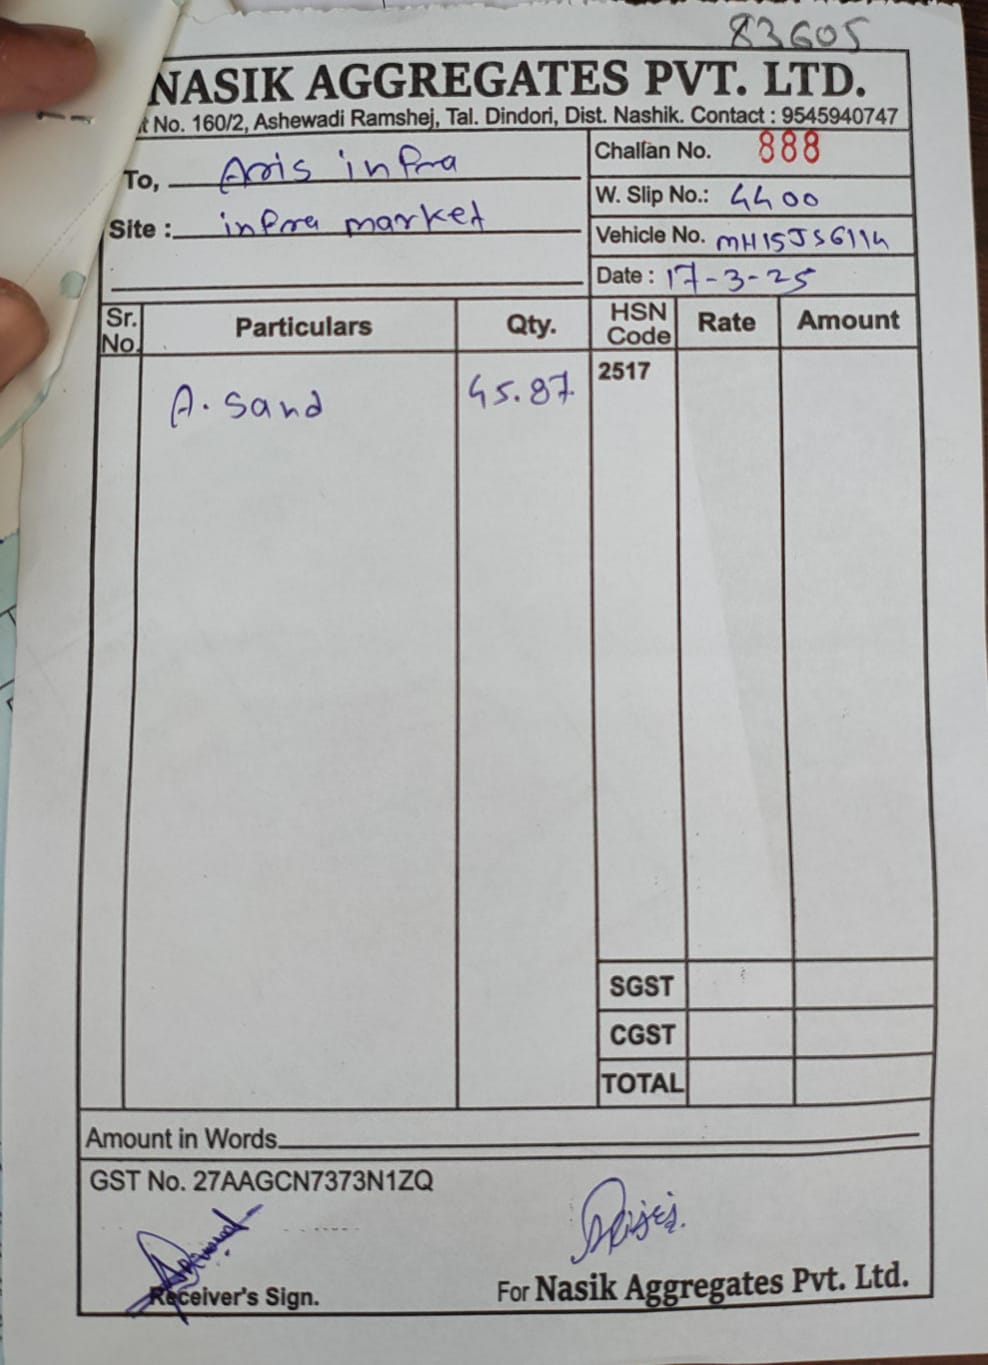 83605
NASIK AGGREGATES PVT. LTD.
t No. 160/2, Ashewadi Ramshej, Tal. Dindori, Dist. Nashik. Contact : 9545940747
To, Aris infra
Site : infra market
Challan No. 888
W. Slip No.: 4400
Vehicle No. MH15JS6114
Date : 17-3-25
Sr. No. Particulars Qty. HSN Code Rate Amount
A. Sand 45.87 2517
SGST
CGST
TOTAL
Amount in Words
GST No. 27AAGCN7373N1ZQ
Receiver's Sign. For Nasik Aggregates Pvt. Ltd.